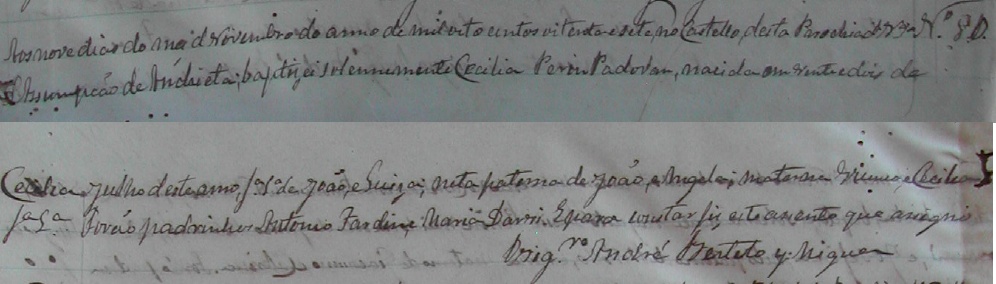 Aos nove dias do mes d Novembro do anno de mil oito centos oitenta e sete, no Castello, desta Parochia d N. Sra Nº 80.
Assumpção de Anchieta, baptizei solennemente Cecilia Perin Padovan, nacida em vinte e dois de
Cecilia Julho deste anno, fa. La. de João, e Luiza; neta paterna de João, e Angela; materna e Cecilia
fa. La. Forão padrinhos Antonio Fardin, e Maria Davri. E para constar fiz este assento que assigno
Vig.ro André